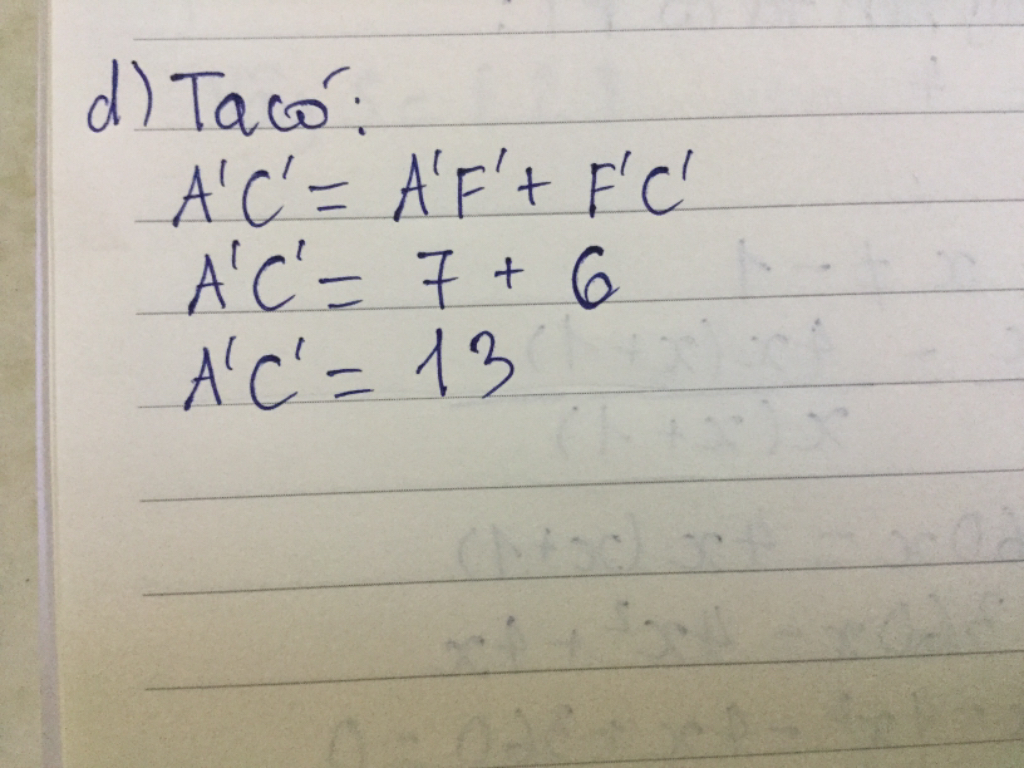 d) Ta có:
A'C' = A'F' + F'C'
A'C' = 7 + 6
A'C' = 13